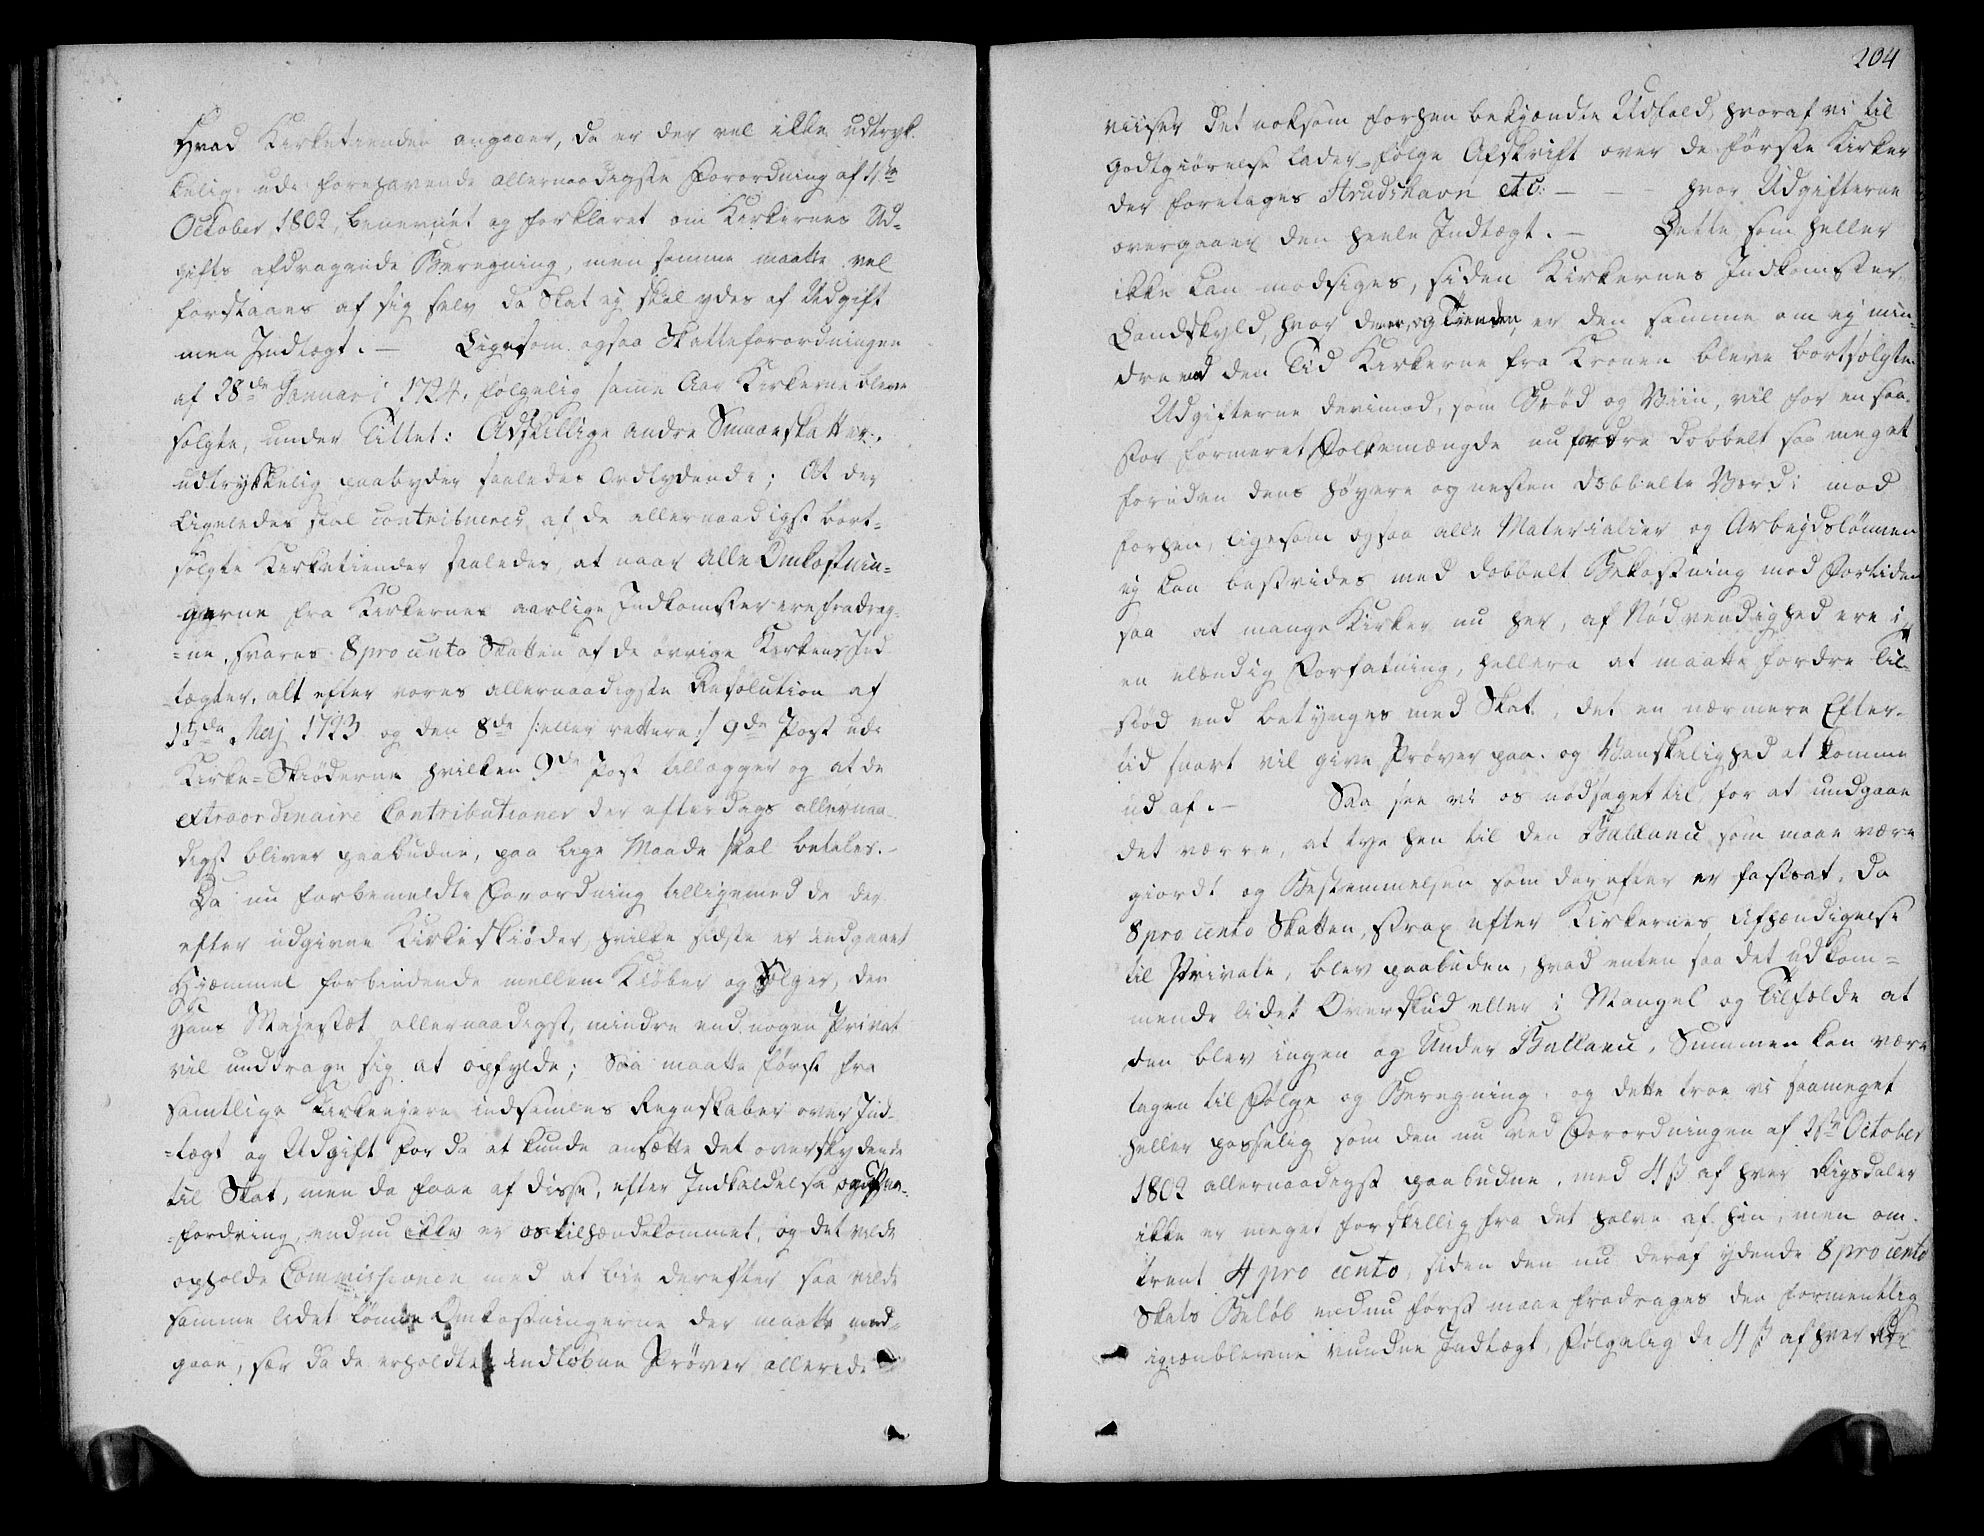 Hvad Kirketienden angaaer, da er der vel ikke udtryk
kelig udi forehavende allernaadigste Forordning af 1ste
October 1802, benevnet og forklaret om Kirkernes Ud-
gifts afdragende Beregning, men samme maatte vel
forstaaes af sig selv da Skat ej skal ydes af Udgift
men Indtægt. — Ligesom ogsaa Skatteforordningen
af 28de Januari 1724, følgelig samme Aar Kirkerne bleve
solgte, under Tittel: Adskillige andre Smaaeskatter,
udtrykkelig paabyder saaledes Ordlydende; At der
Ligeledes skal contribueres af de allernaadigst bort-
solgte Kirketiender saaledes, at naar alle Omkostnin-
gerne fra Kirkernes aarlige Indkomster ere fradrag-
=ne, svares 8 pro cento Skatten af de øvrige Kirkens Ind
-tægter, alt efter vores allernaadigste Resolution af
15de Maj 1723 og den 8de /:eller rettere:/ 9de Post udi
Kirke-Skiøderne hvilken 9de Post tillægger og at de
extraordinaire Contributioner der efterdags allernaa-
digst bliver paabudne, paa lige Maade skal betales. -
Da nu forbemeldte Forordning tilligemed de der
efter udgivne Kirkeskiøder, hvilke sidste er indgaaet
Hiemmel forbindende mellem Kiøber og Sælger, den
Hans Majestæt allernaadigst, mindre end nogen Privat
vil unddrage sig at opfylde; Saa maatte først fra
samtlige Kirkeejere indsamles Regnskaber over Ind-
=tægt og Udgift for da at kunde ansætte det overskydende
til Skat, men da faae af disse, efter Indkaldelse og Paa-
-fordring, endnu ikke er os tilhændekommet, og det vilde
opholde Commissionen med at bie derefter saa vilde
samme lidet lønne Omkostningerne der maatte med-
gaae, sær da de erholdte indløbne Prøver allerede
204
viiser det noksom forhen bekjendte Udfald, hvoraf vi til
Godtgiørelse lader følge Afskrift over de første Kirker
der foretages Strudshavn etc: — — hvor Udgifterne
overgaaer den heele Indtægt. — Dette som heller
ikke kan modsiges, siden Kirkernes Indkomster,
Landskyld, hvor den er, og Tienden, er den samme om ej min-
dre end den Tid Kirkerne fra Kronen bleve bortsolgte.
Udgifterne derimod, som Brød og Viin, vil for en saa
stor formeret Folkemængde nu fordre dobbelt saa meget
foruden dens høyere og nesten dobbelte Værdi mod
forhen, ligesom ogsaa alle Materialier og Arbejdslønnen
ej kan bestrides med dobbelt Bekostning mod fortiden
saa at mange Kirker nu her, af Nødvendighed ere i
en elændig Forfatning, hellere at maatte fordre Til-
skød end betynges med Skat, det en nærmere Efter-
tid snart vil give Prøver paa. og Vanskelighed at komme
ud af. — Saa see vi os nødsaget til, for at undgaae
det værre, at tye hen til den Ballance som maae være
giordt og Bestemmelsen som derefter er fastsat, da
8 pro cento Skatten, strax efter Kirkernes Afhændigelse
til Private, blev paabuden, hvad enten saa det udkom-
mende lidet Overskud eller i Mangel og Tilfælde at
den blev ingen og Under Ballance, Summen kan være
tagen til Følge og Beregning. og dette troe vi saameget
heller passelig som den nu ved Forordningen af 1ste October
1802 allernaadigst paabudne, med 4 ß af hver Rigsdaler
ikke er meget forskillig fra det halve af hin, men om-
trent 4 pro cento, siden den nu deraf ydende 8 pro cento
Skats Beløb endnu først maae fradrages den formentlig
igienblevne vundne Indtægt, følgelig de 4 ß af hver Rdr